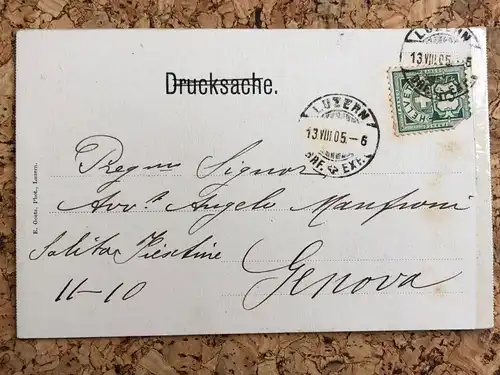 LUZERN
13.VIII.05.-6
BRF. EXP.
HELVETIA
Drucksache.
LUZERN
13.VIII.05.-6
BRF. EXP.
Pregmo Signor
Avv.t Angelo Manfroni
Salita Piestine
11-10
Genova
E. Goetz, Phot., Luzern.